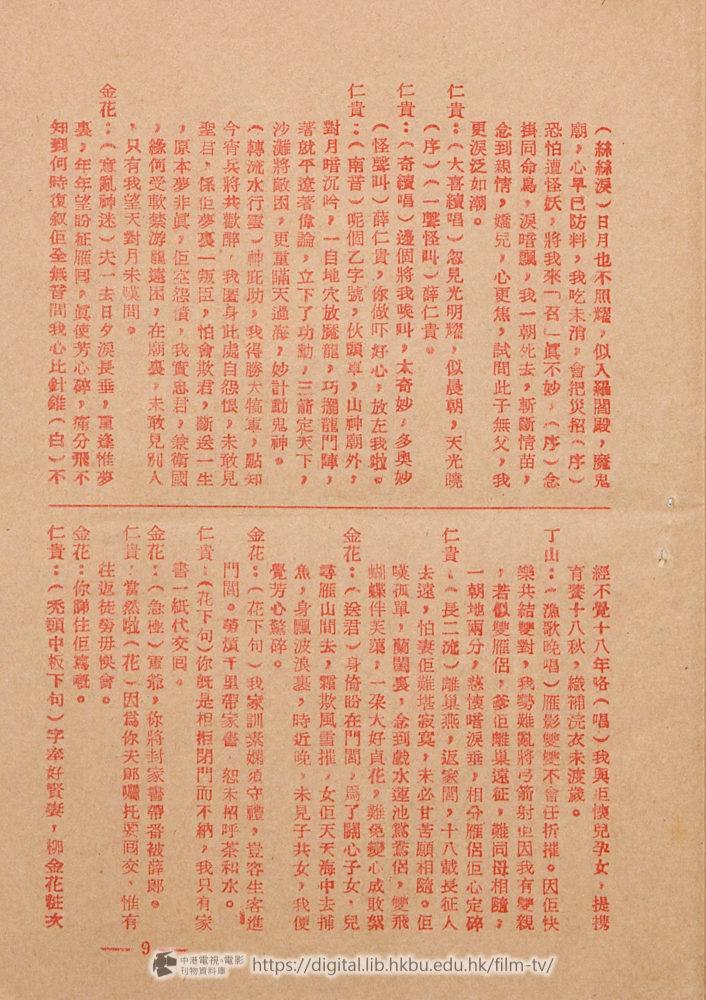 （絲絲淚）日月也不照耀，似入羅閻殿，魔鬼
廟，心早已防料，我吃未消，會把災招（序）
恐怕遭怪妖，將我來「召」眞不妙，（序）念
掛同命鳥，淚嗜飄，我一朝死去，斬斷情苗，
念到親情，嬌兒，心更焦，試問此子無父，我
更淚泛如潮。
仁貴：（大喜續唱）忽見光明耀，似晨朝，天光曉
（序）（一聲怪叫）薛仁貴。
仁貴：（奇續唱）邊個將我唉叫，太奇妙，多奧妙
（怪聲叫）薛仁貴，你做吓好心，放左我啦。
仁貴：（南音）呢個乙字號，伙頭軍，山神廟外，
對月暗沉吟，一自地穴放魔龍，巧擺龍門陣，
著就平遼著偉論，立下了功勳，三箭定天下，
沙灘將敵困，更重瞞天過海，妙計動鬼神。
（轉流水行雲）神庇助，我得勝大犒軍，點知
今宵兵將共歡醉，我匿身此處自怨恨，未敢見
聖君，係佢夢裏一叛臣，怕會欺君，斷送一生
，原本夢非眞，佢室怨憤，我實忠君，兼衛國
，緣何受軟禁游龍遠困，在廟裏，未敢見別人
，只有我望天對月未嘆間。
金花：（意亂神迷）夫一去日夕淚長垂，重逢惟夢
裏，年年望盼征雁囘，眞使芳心碎，痛分飛不
知到何時復叙佢全無音問我心比針錐（白）不
經不覺十八年咯（唱）我與佢懷兒孕女，提携
育養十八秋，織補浣衣未渡歲。
丁山：（漁歌晚唱）雁影雙雙不會任折摧。因佢快
樂共結雙對，我勢難亂將弓箭射也因我有雙親
，若似雙雁侶，爹佢離巢遠征，難同母相隨，
一朝地兩分，慈懷嗜淚垂，相分雁侶佢心定碎
仁貴：（長二流）離巢燕，返家閭，十八載長征人
去遠，怕妻佢難堪寂寞，未必甘苦願相隨。佢
嘆孤單，蘭閨裏，念到戲水蓮池鴛鴦侶，雙飛
蝴蝶伴芙蕖，一朶大好貞花，難免變心成敗絮
金花：（送君）身倚盼在門閭，爲了關心子女，兒
尋雁山間去，霜欺風雪摧，女佢天天海中去捕
魚，身飄波浪裹，時近晚，未見子共女，我便
覺芳心驚碎。
金花：（花下句）我家訓素嫻須守禮，豈容生客進
門閭。勞煩千里帶家書，恕未招呼茶和水。
仁貴：（花下句）你旣是相拒閉門而不納，我只有家
書一紙代交囘。
金花：（急極）軍爺，你將封家書帶番被薛郎。
仁貴：當然啦（花）因爲你夫郎囑托要囘交，惟有
往返徒勞毋悞會。
金花：你睇住佢寫嘅。
仁貴：（禿頭中板下句）字奉好賢妻，柳金花粧次
9
中港電視・電影
刊物資料庫
https://digital.lib.hkbu.edu.hk/film-tv/